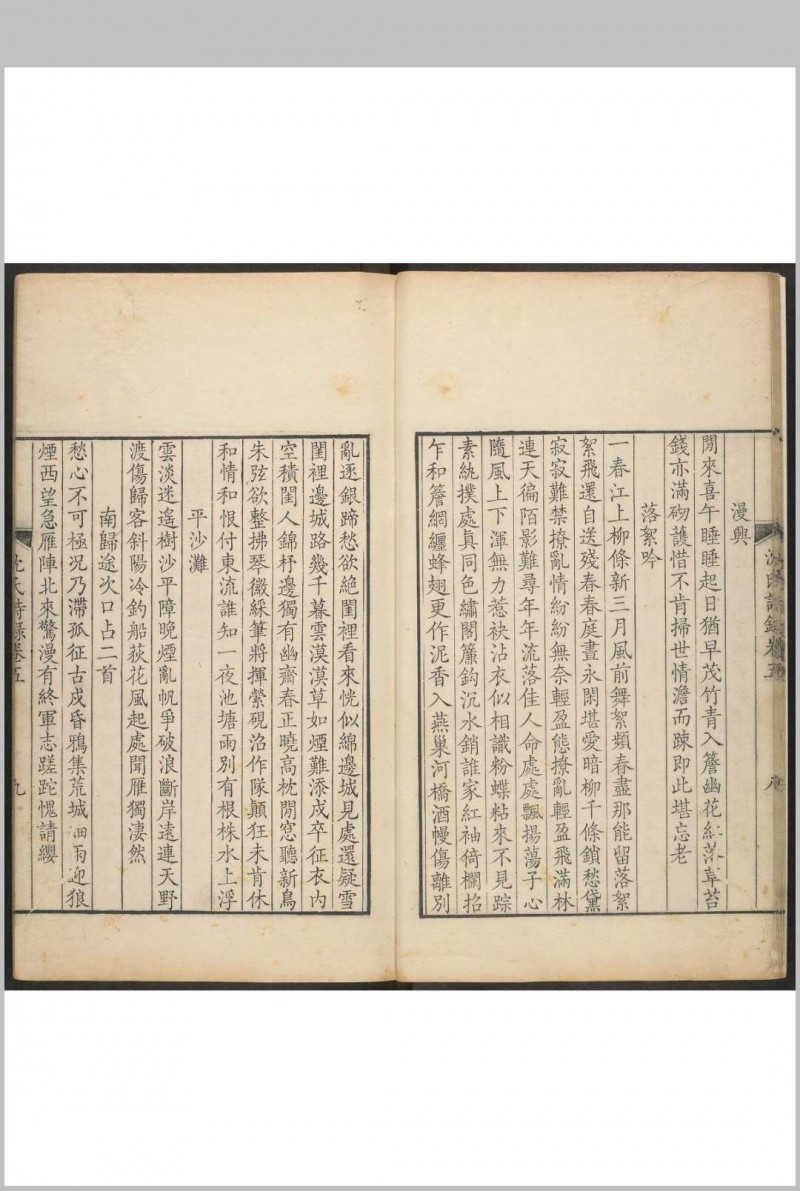 漫興
閒來喜午睡睡起日猶早茂竹青入簷幽花紅落草苔
錢亦滿砌護惜不肯掃世情澹而疎即此堪忘老
落絮吟
一春江上柳條新三月風前舞絮頻春盡那能留落絮
絮飛還自送殘春春庭晝永閑堪愛暗柳千條鎖愁黛
寂寂難禁撩亂情紛紛無奈輕盈態撩亂輕盈飛滿林
連天徧陌影難尋年年流落佳人命處處飄揚蕩子心
隨風上下渾無力惹袂沾衣似相識粉蝶粘來不見踪
素紈撲處真同色繡閣簾鈎沉水銷誰家紅袖倚欄招
乍和簷網纏蜂翅更作泥香入燕巢河橋酒幔傷離別
亂逐銀蹄愁欲絕閨裡看來恍似綿邊城見處還疑雪
閨裡邊城路幾千暮雲漠漠草如煙難添戍卒征衣內
空積閨人錦杼邊獨有幽齋春正曉高枕閒窓聽新鳥
朱弦欲整拂琴徽綵筆將揮縈硯沼作隊顛狂未肯休
和情和恨付東流誰知一夜池塘雨別有根株水上浮
平沙灘
雲淡迷遙樹沙平障晚煙亂帆爭破浪斷岸遠連天野
渡傷歸客斜陽冷釣船荻花風起處聞雁獨淒然
南歸途次口占二首
愁心不可極况乃滯孤征古戍昏鴉集荒城細雨迎狼
煙西望急雁陣北來驚漫有終軍志蹉跎愧請纓
沈氏詩錄卷五
九